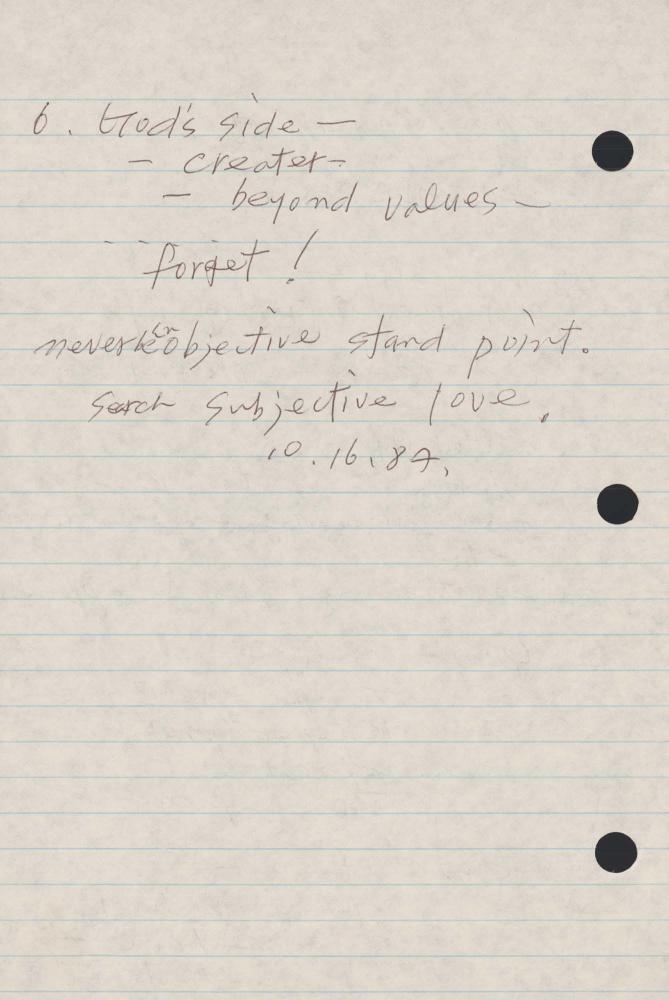 6. God's side —
— creater -
— beyond values —
forget!
never be in objective stand point.
Search subjective love.
10.16.87.